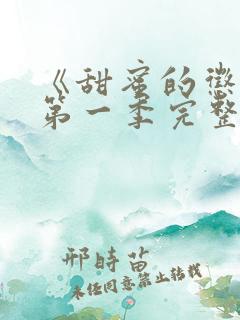 《甜蜜的惩
第一季完整
邢時苗
未任同意禁止转载